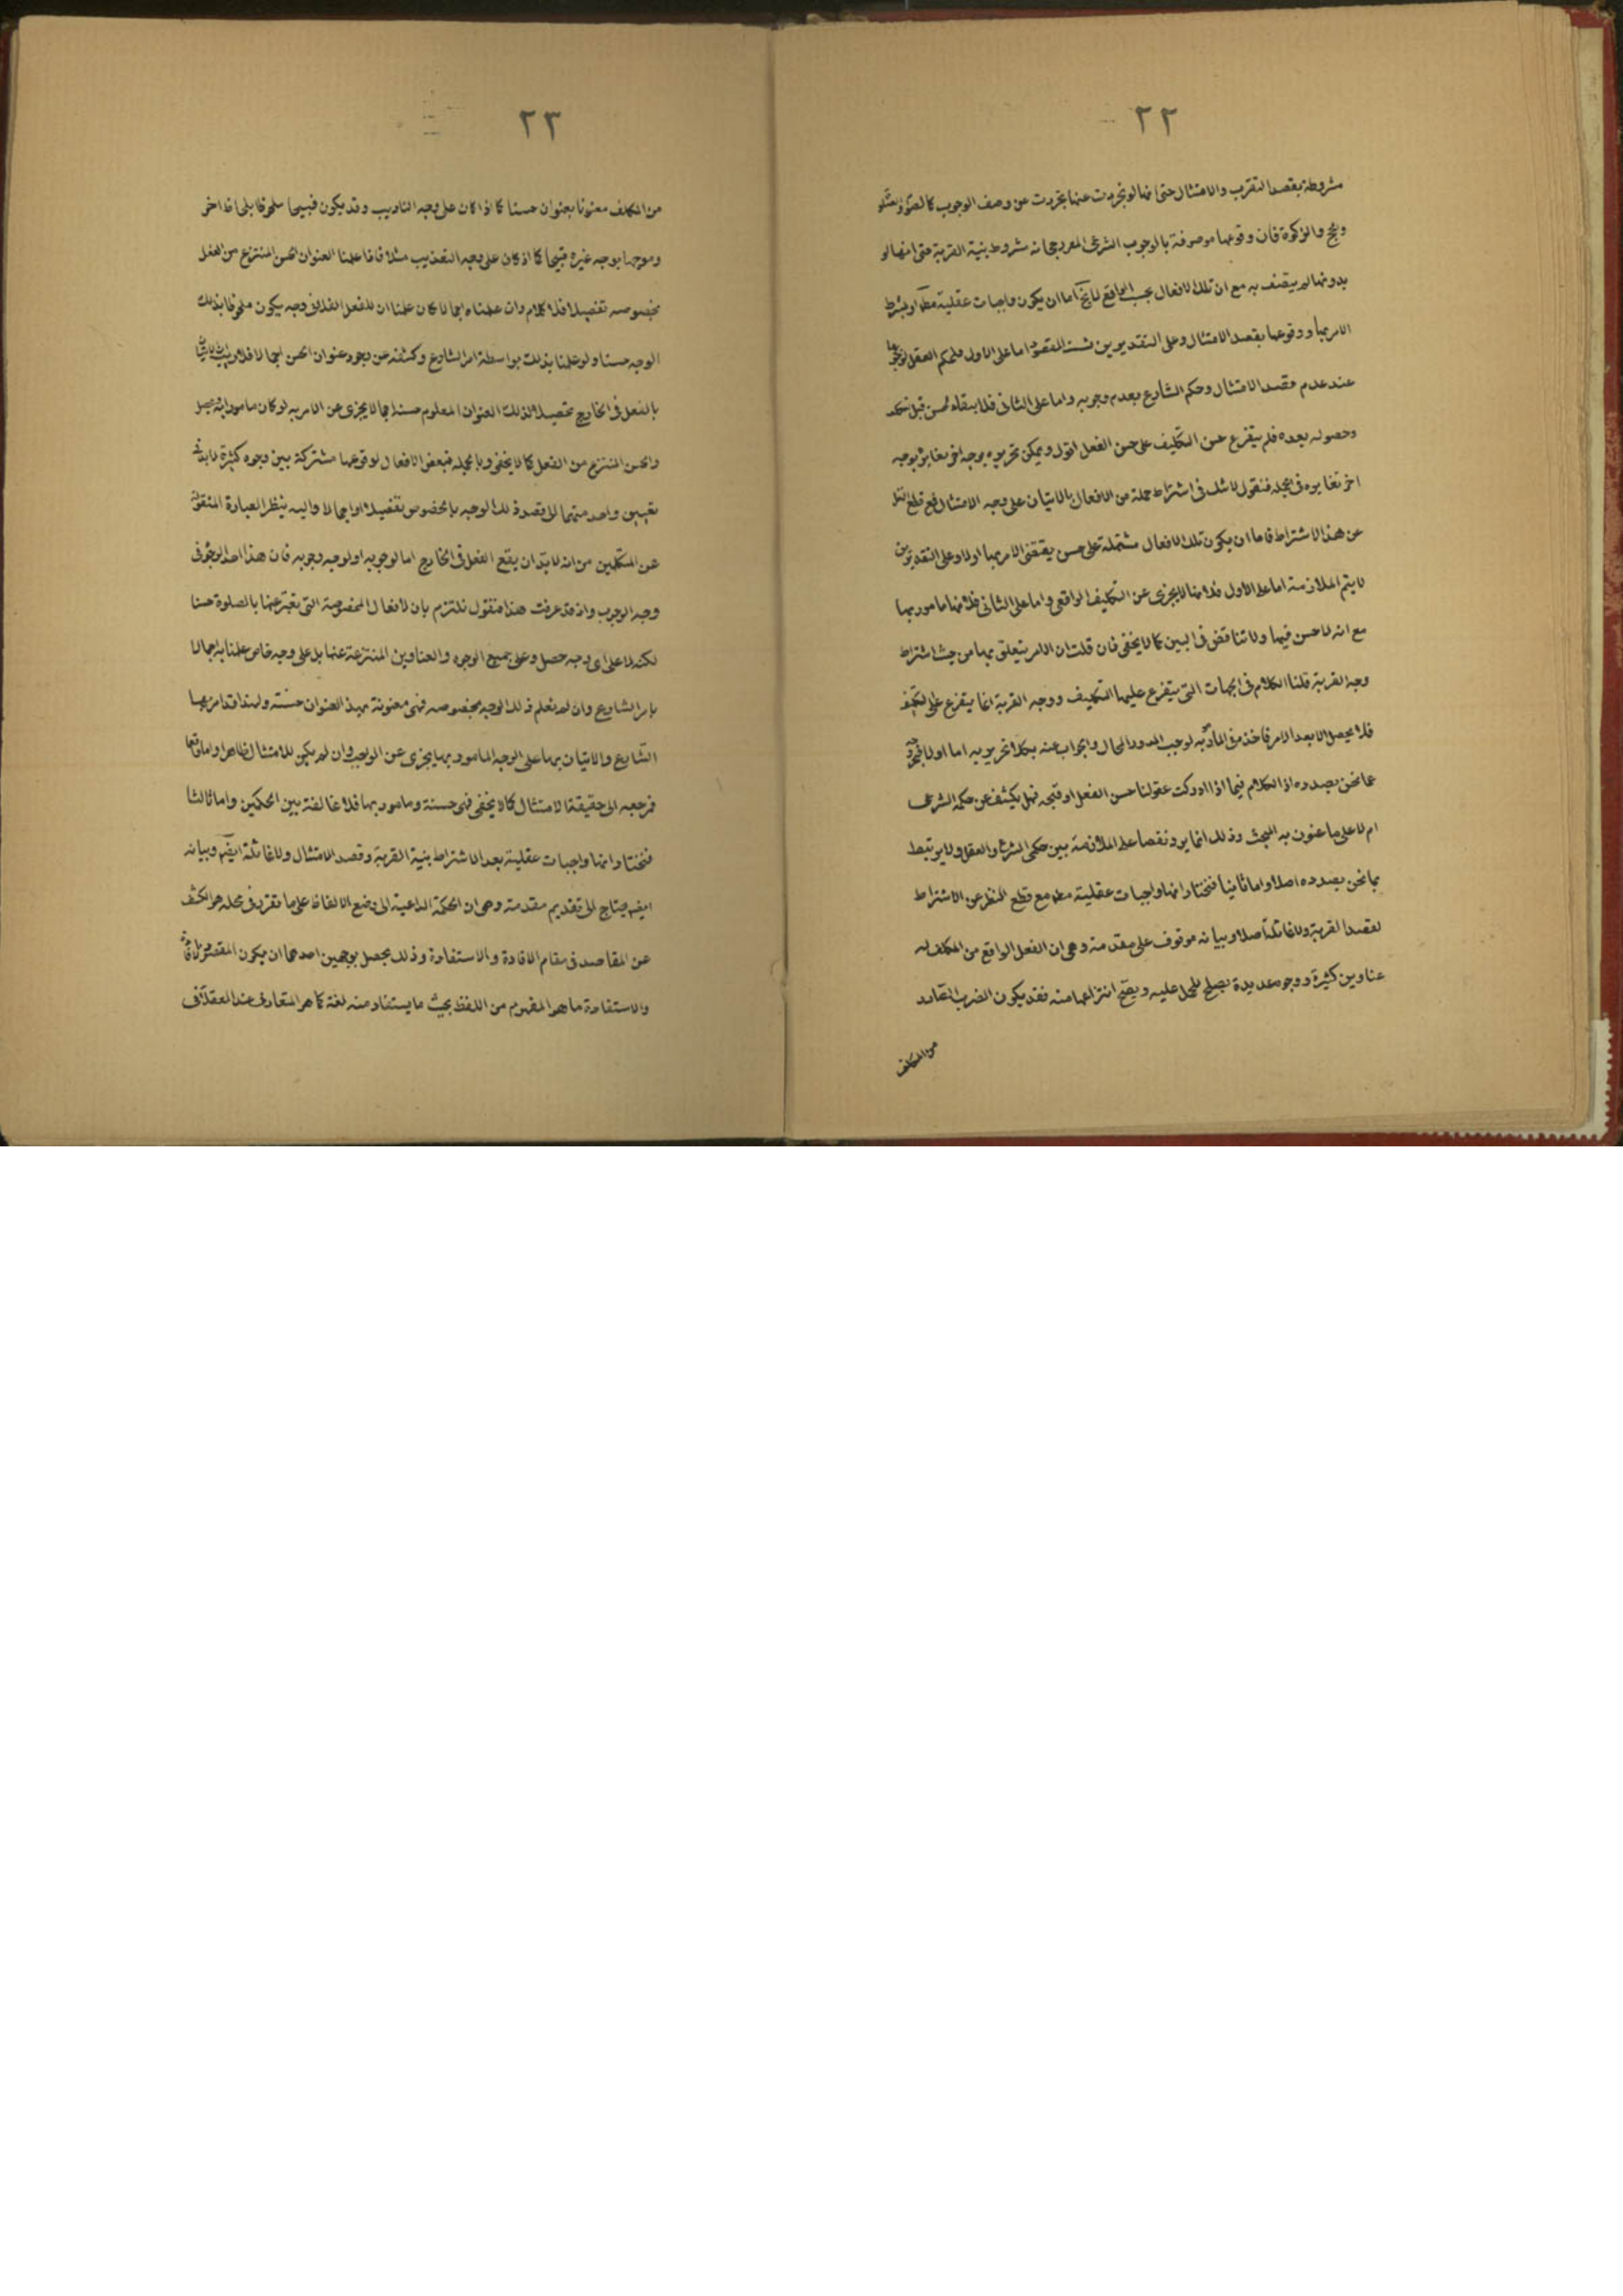 ٢٢
مشروطة بقصد التقرب والامتثال حتى انها لو تجردت عنها تجردت عن وصف الوجوب كالصوم والصلوة
والحج والزكوة فان وقوعها موصوفة بالوجوب الشرعى المعر جحانه مشروط بنية القربة حتى انها لو
بدونها لم يتصف به مع ان تلك الافعال بحسب الواقع لا يخ اما ان يكون واجبات عقلية مطلقا او بشرط
الامر بها ووقوعها بقصد الامتثال وعلى التقديرين ثبت المقصود اما على الاول فلحكم العقل بوجوبها
عند عدم قصد الامتثال وحكم الشارع بعدم وجوبه واما على الثانى فلا بتفاء الحسن قبل الحكم
وحصوله بعده فلم يتفرع حسن التكليف على حسن الفعل اقول ويمكن تحريره بوجه اخر يغايره بوجه
اخر تغايره فى الجملة فنقول لا شك فى اشتراط جملة من الافعال بالاتيان على وجه الامتثال فمع قطع النظر
عن هذا الاشتراط فاما ان يكون تلك الافعال مشتملة على حسن يقتضى الامر بها اولا وعلى التقديرين
لا يتم الملازمة اما على الاول فلانها لا يجزى عن التكليف الواقعى واما على الثانى فلانها مامور بها
مع انه لا حسن فيها ولا تناقض فى البين كما لا يخفى فان قلت ان الامر يتعلق بها من حيث اشتراط
وجه القربة قلنا الكلام فى الجهات التى يتفرع عليها التكليف ووجه القربة انما يتفرع على التكليف
فلا يحصل الا بعد الامر فاخذه فى المأمور به لوجب الدور المحال والجواب عنه بكلا تحريريه اما اولا فبخروجه
عما نحن بصدده اذ الكلام فيما اذا ادركت عقولنا حسن الفعل او قبحه فهل يكشف عن حكمه الشرعى
ام لا على ما عنون به المبحث وذلك انما يرد نقضا على الملازمة بين حكمى الشرع والعقل ولا يرتبط
بما نحن بصدده اصلا واما ثانيا فنختار انها واجبات عقلية مطلقا مع قطع النظر عن الاشتراط
لقصد القربة ولا غائلة اصلا وبيانه موقوف على مقدمة وهى ان الفعل الواقع من المكلف له
عناوين كثيرة ووجوه عديدة يصلح للحمل عليه ويصح انتزاعها منه فقد يكون الضرب الصادر
من المكلف
٢٣
من المكلف معنونا بعنوان حسنا كما اذا كان على وجه التاديب وقد يكون قبيحا ملحوظا بلحاظ اخر
وموجها بوجه غيره قبيحا كما اذ كان على وجه التعذيب مثلا فاذا علمنا العنوان الحسن المنتزع من الفعل
بخصوصه تفصيلا فلا كلام وان علمناه اجمالا كان علمنا ان للفعل الفلانى وجه يكون ملحوظا بذلك
الوجه حسنا ولو علمنا بذلك بواسطة امر الشارع وكشفه عن وجود عنوان الحسن اجمالا فلا ريب ان الاتيان
بالفعل فى الخارج تحصيلا لذلك العنوان المعلوم حسنه اجمالا يجزى عن الامر به لو كان مامورا به ويحصل
والحسن المنتزع من الفعل كما لا يخفى وبالجملة فبعض الافعال لوقوعها مشتركة بين وجوه كثيرة لا بد فى
تعيين واحد منهما الا قصد ذلك الوجه بالخصوص تفصيلا او اجمالا واليه ينظر العبارة المنقولة
عن المتكلمين من انه لا بد ان يقع الفعل فى الخارج اما لوجوبه او لوجه وجوبه فان هذا احد الوجوه فى
وجه الوجوب واذ قد عرفت هذا فنقول نلتزم بان لافعال المخصوصة التى نعبر عنها بالصلوة حسنا
لكنه لا على اى وجه حصل وعلى جميع الوجوه والعناوين المنتزعة عنها بل على وجه خاص علمنا به اجمالا
بامر الشارع وان لم نعلم ذلك الوجه بخصوصه فهى معنونة بهذ العنوان حسنة ولهذا قد امر بها
الشارع والاتيان بها على الوجه المامور بها يجزى عن الواجب وان لم يكن للامتثال ظاهرا واما واقعا
فمرجعه الى حقيقة الامتثال كما لا يخفى فهى حسنة ومامور بها فلا مخالفة بين الحكمين واما ثالثا
فنختار انها واجبات عقلية بعد الاشتراط بنية القربة وقصد الامتثال ولا غائلة ايضا وبيانه
ايضا يحتاج الى تقديم مقدمة وهى ان الحكمة الداعية الى وضع الالفاظ على ما تقرر فى محله هو الكشف
عن المقاصد فى مقام الافادة والاستفادة وذلك يحصل بوجهين احدهما ان يكون المقصود بالافادة
والاستفادة ما هو المفهوم من اللفظ بحيث ما يستفاد منه لغة كما هو المتعارف عند العقلاء فى